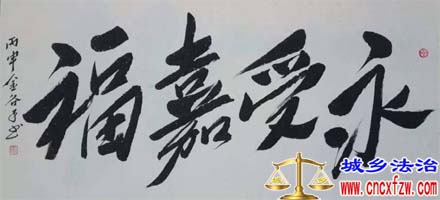 永受嘉福
丙申金谷子书
城乡法治
www.cncxfzw.com